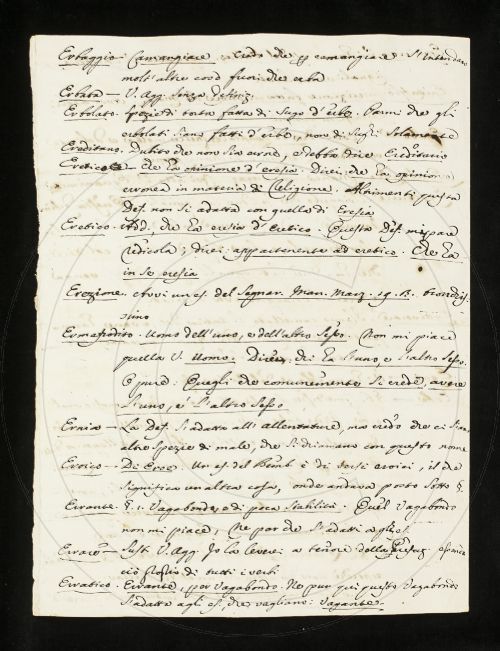 Erbaggio. Camangiare. Credo che p camangiare s'intendano
molt'altre cose fuori che erba
Erbata — V. Agg. senza
Erbolato. Spezie di torta fatta di sugo d'erbe. Parmi che gli
erbolati siano fatti d'erbe, non di sughi solamente
Ereditano. Dubito che non sia errore, e debba dire Ereditario
Eretico — Che ha opinione d'eresia. Direi che ha opinione
erronea in materia di Religione. Altrimenti questa
Def. non si adatta con quella di Eresia
Eretico. Add. che ha eresia d'Eretico. Questa Def. mi pare
ridicola; direi appartenente ad eretico. Che ha
in se eresia
Erezione. Avvi un es. del Segner. Man. Marz. 19. B.
simo
Ermafrodito. Uomo dell'uno, e dell'altro sesso. Non mi piace
quella V. Uomo. Direi, chi ha l'uno e l'altro sesso.
O pure: Quegli che comunemente si crede, avere
l'uno, e l'altro sesso
Ernia — La Def. s'adatta all'allentatura, ma credo che ci siano
altre spezie di male, che si chiamano con questo nome
Eroico — Di Eroe. Un es. del Bemb. è di versi eroici, il che
significa un'altra cosa, onde andava posto sotto §.
Errante. §. 1. Vagabondo, e di poca stabilità. Quel Vagabondo
non mi piace, ne par che s'adatti a gli es.
Errare — Sust. V. Agg. Io la leverei a tenore della
di tutti i verbi
Erratico. Errante, per Vagabondo. Ne pur qui questo Vagabondo
s'adatta agli es. che vagliano: Vagante.